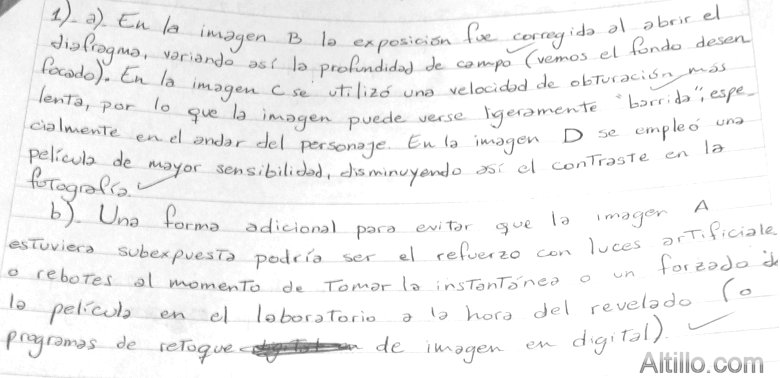 1)- a). En la imagen B la exposición fue corregida al abrir el
diafragma, variando así la profundidad de campo (vemos el fondo desen
focado). En la imagen C se utilizó una velocidad de obturación más
lenta, por lo que la imagen puede verse ligeramente "barrida", espe-
cialmente en el andar del personaje. En la imagen D se empleó una
película de mayor sensibilidad, disminuyendo así el contraste en la
fotografía.
b). Una forma adicional para evitar que la imagen A
estuviera subexpuesta podría ser el refuerzo con luces artificiale
o rebotes al momento de tomar la instantánea o un forzado d
la película en el laboratorio a la hora del revelado (o
programas de retoque de imagen en digital).
Altillo.com